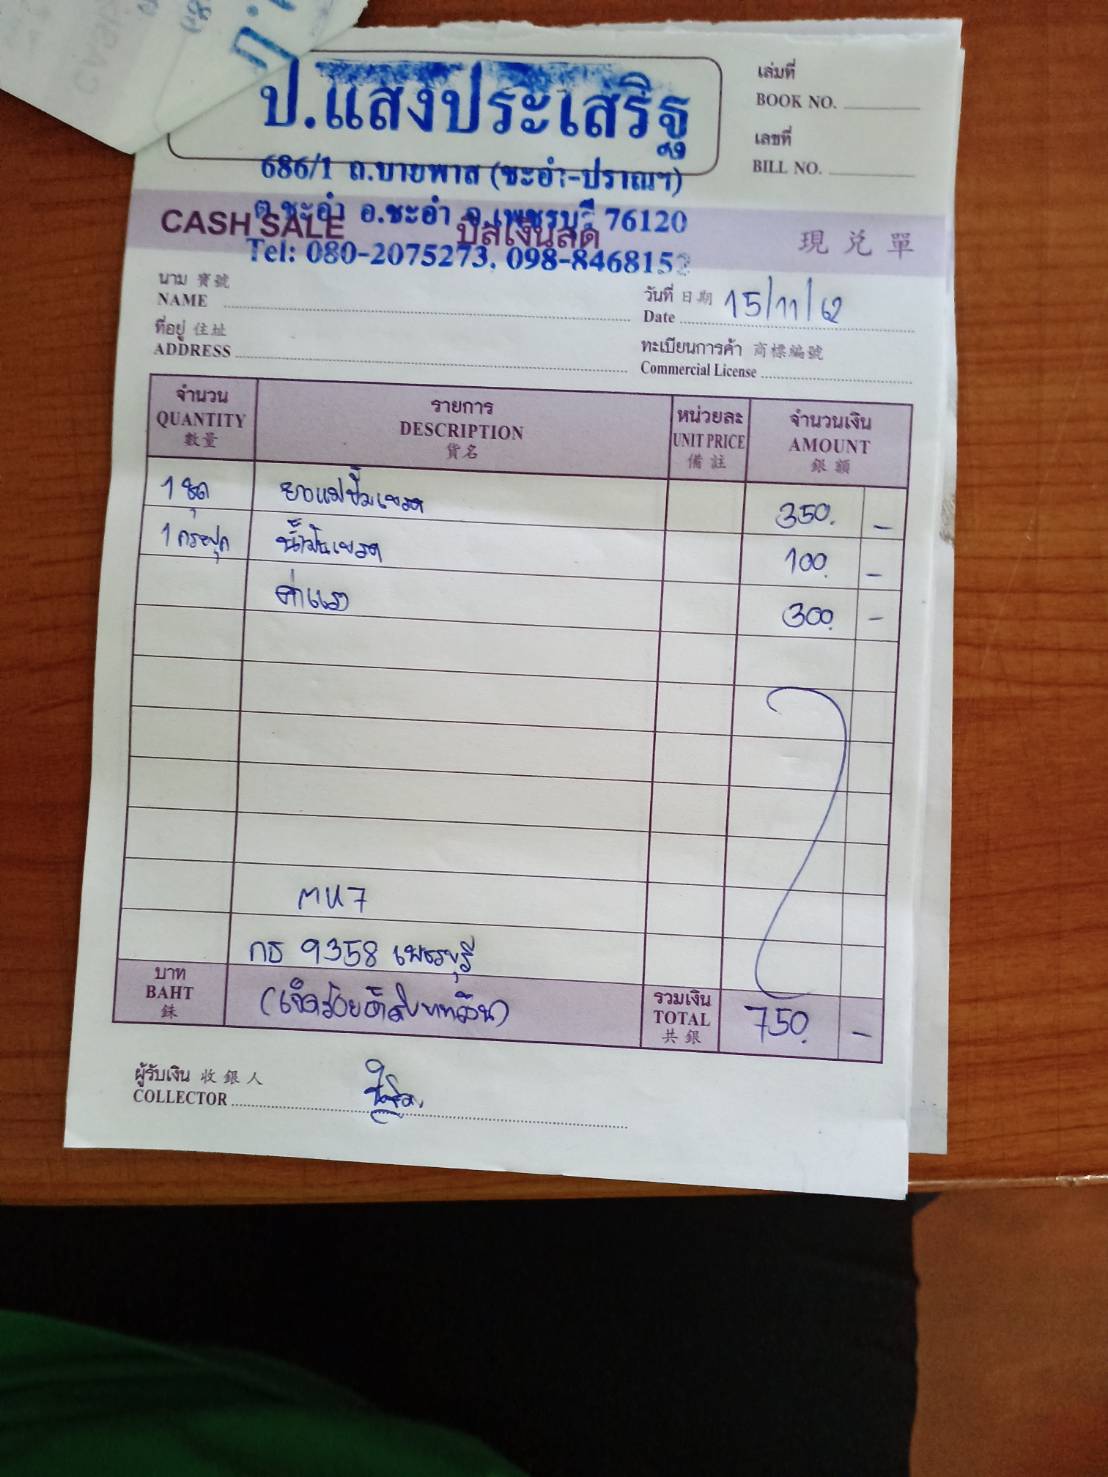 ป.แสงประเสริฐ
686/1 ถ.บายพาส (ชะอำ-ปราณฯ)
ต.ชะอำ อ.ชะอำ จ.เพชรบุรี 76120
Tel: 080-2075273, 098-846815
เล่มที่
BOOK NO.
เลขที่
BILL NO.
CASH SALE บิลเงินสด 現兌單
นาม 寶號
NAME
วันที่ 日期 15/11/62
Date
ที่อยู่ 住址
ADDRESS
ทะเบียนการค้า 商標編號
Commercial License
จำนวน รายการ หน่วยละ จำนวนเงิน
QUANTITY DESCRIPTION UNIT PRICE AMOUNT
數量 貨名 備註 銀額
1 ชุด ยางแม่ปั๊มเบรค 350. -
1 กระปุก น้ำมันเบรค 100. -
ค่าแรง 300. -
MU7
กธ 9358 เพชรบุรี
บาท
BAHT
銖
(เจ็ดร้อยห้าสิบบาทถ้วน)
รวมเงิน
TOTAL
共銀
750. -
ผู้รับเงิน 收銀人
COLLECTOR